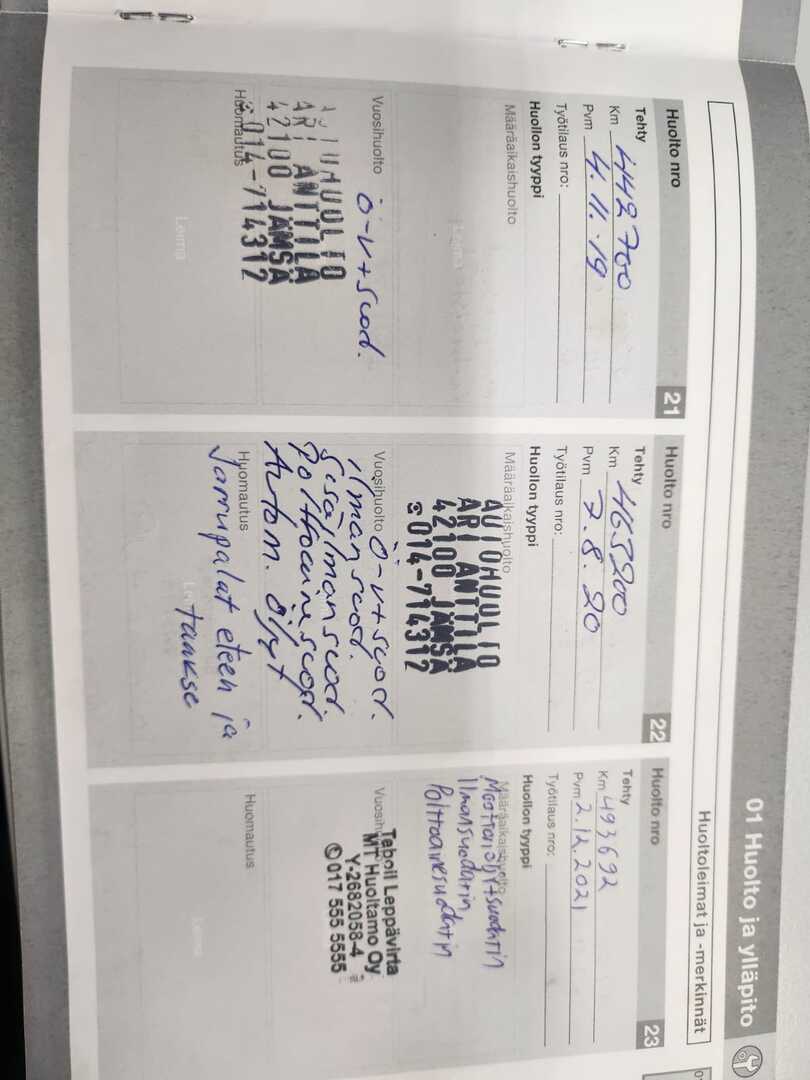 01 Huolto ja ylläpito
Huoltoleimat ja -merkinnät
Huolto nro 21
Tehty
Km 442 700
Pvm 4.11.19
Työtilaus nro:
Huollon tyyppi
Määräaikaishuolto
Leima
Vuosihuolto
Ö-v+suod.
AUTOHUOLTO
ARI ANTTILA
42100 JÄMSÄ
☎014-714312
Huomautus
Leima
Huolto nro 22
Tehty
Km 463200
Pvm 7.8.20
Työtilaus nro:
Huollon tyyppi
Määräaikaishuolto
AUTOHUOLTO
ARI ANTTILA
42100 JÄMSÄ
☎014-714312
Vuosihuolto
Ö-v+suod.
ilmansuod.
Sisäilmansuod.
Polttoainesuod.
Autom. öljyt
Huomautus
Jarrupalat eteen ja
taakse
Huolto nro 23
Tehty
Km 493692
Pvm 2.12.2021
Työtilaus nro:
Huollon tyyppi
Määräaikaishuolto
Moottoriöljyt+suodatin
Ilmansuodatin
Polttoainesuodatin
Vuosihuolto
Teboil Leppävirta
MT Huoltamo Oy
Y-2682058-4
✆017 555 5555
Huomautus
Leima